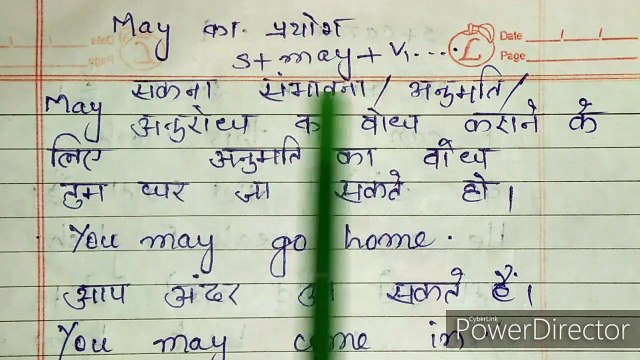 May का प्रयोग
S + may + V₁ ....
Date
Page
May सकना संभावना / अनुमति /
अनुरोध का बोध कराने के
लिए अनुमति का बोध
तुम घर जा सकते हो।
You may go home.
आप अंदर आ सकते हैं।
You may come in
CyberLink
PowerDirector